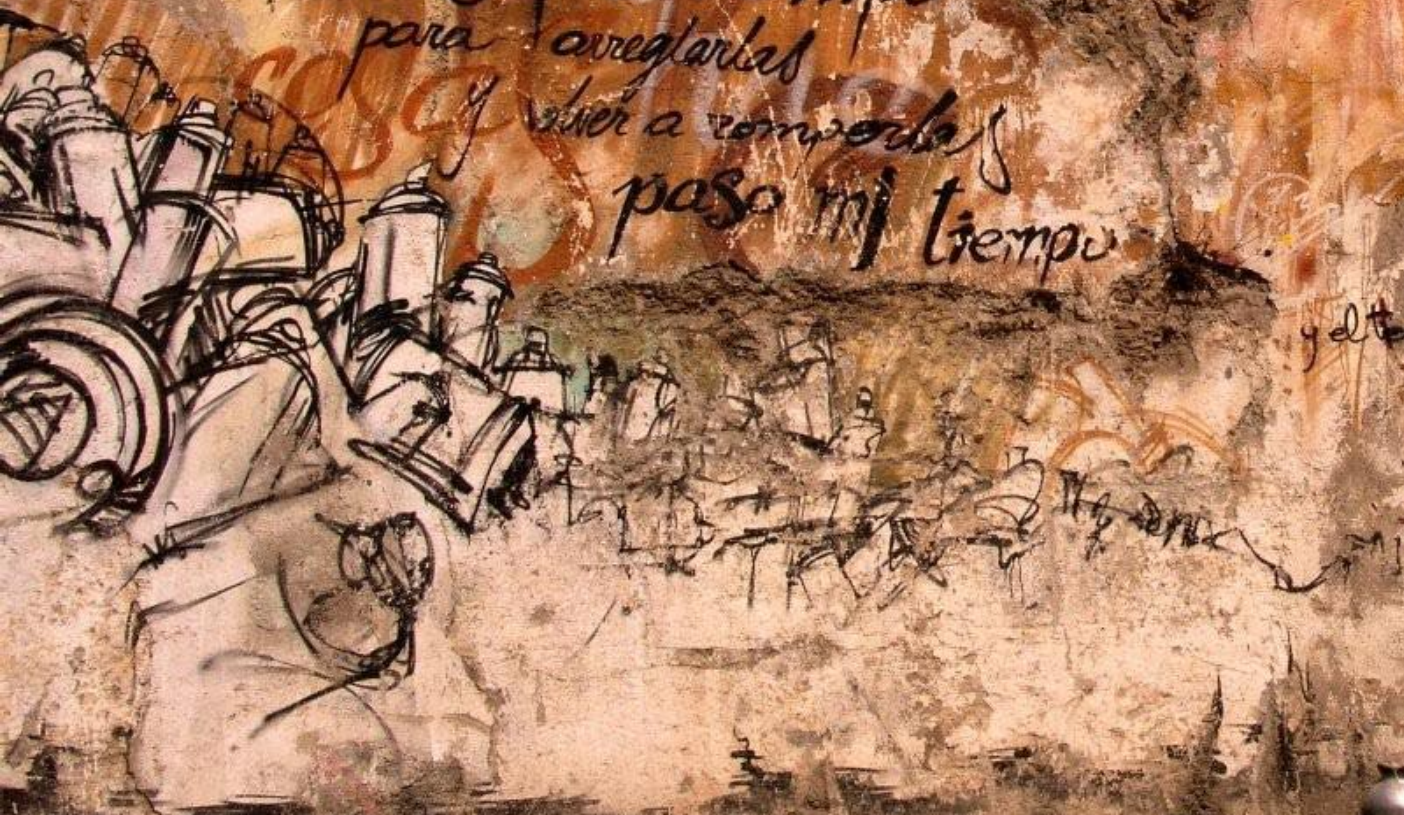 para arreglarlas
y volver a romperlas
paso mi tiempo
y el